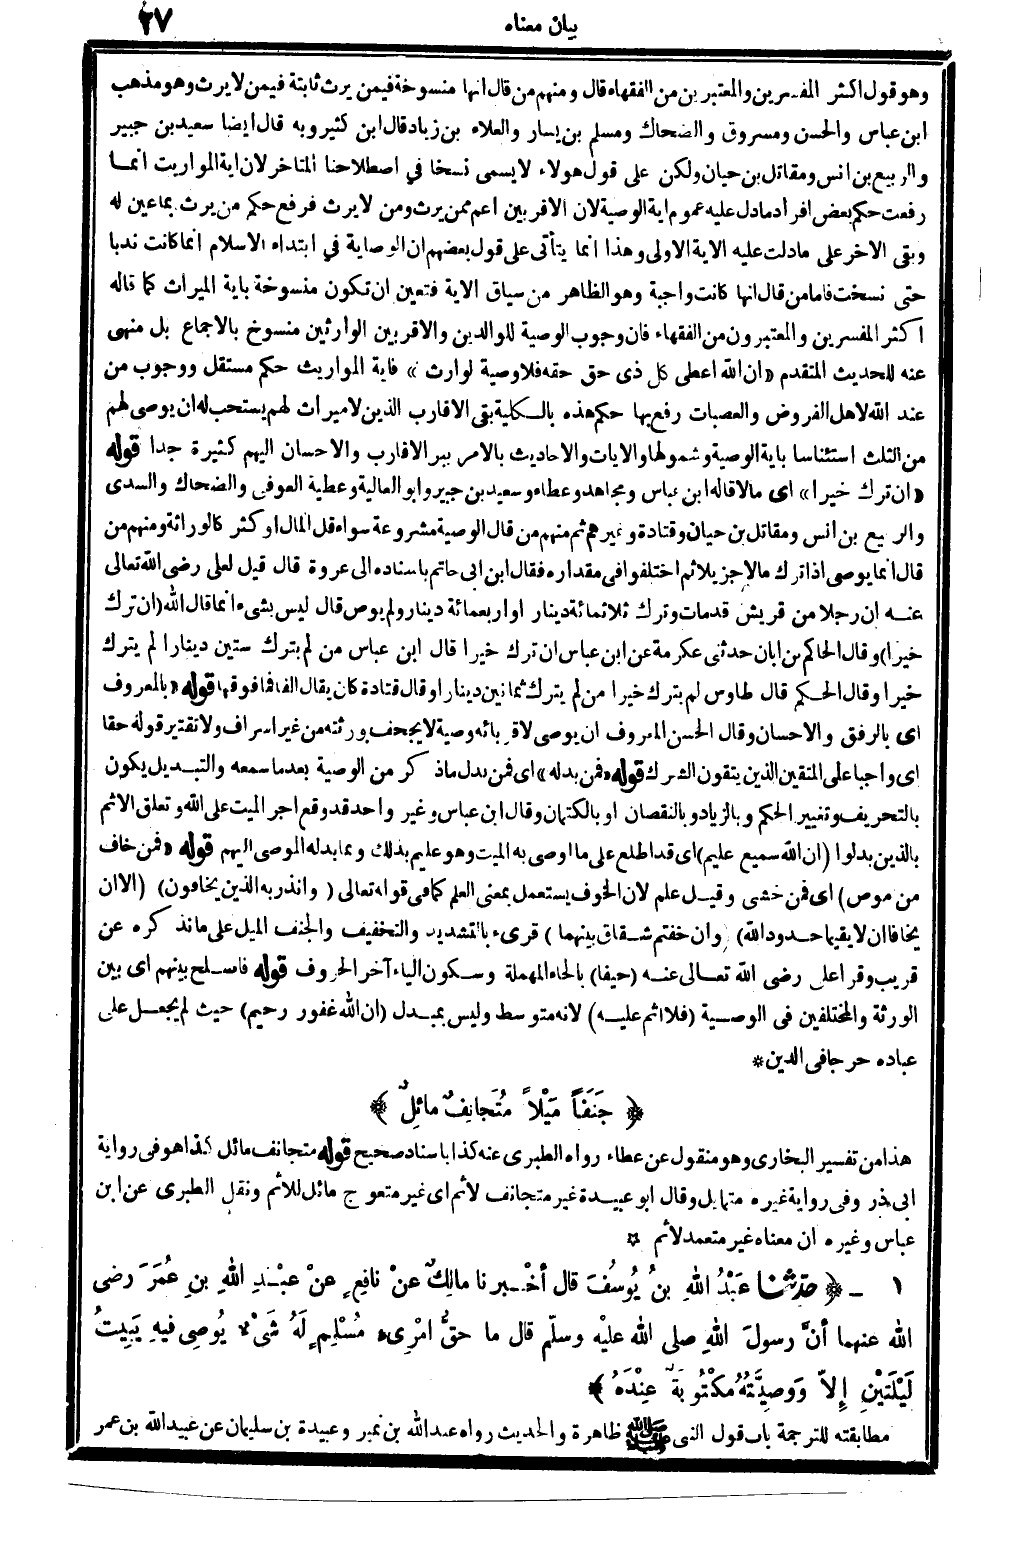 بيان معناه ٢٧
وهو قول اكثر المفسرين والمعتبرين من الفقهاء قال ومنهم من قال انها منسوخة فيمن يرث ثابتة فيمن لا يرث وهو مذهب
ابن عباس والحسن ومسروق والضحاك ومسلم بن يسار والعلاء بن زياد قال ابن كثير وبه قال ايضا سعيد بن جبير
والربيع بن انس ومقاتل بن حيان ولكن على قول هولاء لا يسمى نسخا في اصطلاحنا المتاخر لان اية المواريث انما
رفعت حكم بعض افراد ما دل عليه عموم اية الوصية لان الاقربين اعم ممن يرث ومن لا يرث فرفع حكم من يرث بما عين له
وبقى الاخر على ما دلت عليه الاية الاولى وهذا انما يتأتى على قول بعضهم ان الوصاية في ابتداء الاسلام انما كانت ندبا
حتى نسخت فاما من قال انها كانت واجبة وهو الظاهر من سياق الاية فتعين ان تكون منسوخة باية الميراث كما قاله
اكثر المفسرين والمعتبرون من الفقهاء فان وجوب الوصية للوالدين والاقربين الوارثين منسوخ بالاجماع بل منهى
عنه للحديث المتقدم «ان الله اعطى كل ذى حق حقه فلا وصية لوارث» فاية المواريث حكم مستقل ووجوب من
عند الله لاهل الفروض والعصبات رفع بها حكم هذه بالكلية بقى الاقارب الذين لا ميراث لهم يستحب له ان يوصى لهم
من الثلث استئناسا باية الوصية وشمولها والايات والاحاديث بالامر ببر الاقارب والاحسان اليهم كثيرة جدا قوله
«ان ترك خيرا» اى مالا قاله ابن عباس ومجاهد وعطاء وسعيد بن جبير وابو العالية وعطية العوفى والضحاك والسدى
والربيع بن انس ومقاتل بن حيان وقتادة وغيرهم ثم منهم من قال الوصية مشروعة سواء قل المال او كثر كالوراثة ومنهم من
قال انما يوصى اذا ترك مالا جزيلا ثم اختلفوا في مقداره فقال ابن ابى حاتم باسناده الى عروة قال قيل لعلى رضى الله تعالى
عنه ان رجلا من قريش قد مات وترك ثلاثمائة دينار او اربعمائة دينار ولم يوص قال ليس بشىء انما قال الله (ان ترك
خيرا) وقال الحاكم بن ابان حدثنى عكرمة عن ابن عباس ان ترك خيرا قال ابن عباس من لم يترك ستين دينارا لم يترك
خيرا وقال الحكم قال طاوس لم يترك خيرا من لم يترك ثمانين دينار او قال قتادة كان يقال الفا فما فوقها قوله «بالمعروف
اى بالرفق والاحسان وقال الحسن المعروف ان يوصى لاقربائه وصية لا يجحف بورثته من غير اسراف ولا تقتير قوله حقا
اى واجبا على المتقين الذين يتقون الشرك قوله «فمن بدله» اى فمن بدل ما ذكر من الوصية بعد ما سمعه والتبديل يكون
بالتحريف وتغيير الحكم وبالزياد وبالنقصان او بالكتمان وقال ابن عباس وغير واحد قد وقع اجر الميت على الله وتعلق الاثم
بالذين بدلوا (ان الله سميع عليم) اى قد اطلع على ما اوصى به الميت وهو عليم بذلك وبما بدله الموصى اليهم قوله «فمن خاف
من موص) اى فمن خشى وقيل علم لان الخوف يستعمل بمعنى العلم كما فى قوله تعالى (وانذر به الذين يخافون) (الا ان
يخافا ان لا يقيما حدود الله) (وان خفتم شقاق بينهما) قرىء بالتشديد والتخفيف والجنف الميل على ما نذكره عن
قريب وقرا على رضى الله تعالى عنه (حيفا) بالحاء المهملة وسكون الياء آخر الحروف قوله فاصلح بينهم اى بين
الورثة والمختلفين فى الوصية (فلا اثم عليه) لانه متوسط وليس بمبدل (ان الله غفور رحيم) حيث لم يجعل على
عباده حرجا فى الدين *
﴿ جَنَفَاً مَيْلاً مُتَجانِفٌ مائِلٌ ﴾
هذا من تفسير البخارى وهو منقول عن عطاء رواه الطبرى عنه كذا باسناد صحيح قوله متجانف مائل كذا هو فى رواية
ابى ذر وفى رواية غيره متمايل وقال ابو عبيدة غير متجانف لاثم اى غير متعوج مائل للاثم ونقل الطبرى عن ابن
عباس وغيره ان معناه غير متعمد لاثم ☆
١ - ﴿ حدثنا عَبْدُ اللهِ بنُ يُوسُفَ قال أخْبرنا مالِكٌ عنْ نافِعٍ عنْ عبْدِ اللهِ بنِ عُمَرَ رضى
الله عنهما أنَّ رسولَ اللهِ صلى الله عليْه وسلّم قال ما حقُّ امْرِىءٍ مُسْلِمٍ لَهُ شَىْءٌ يُوصِى فيهِ يَبِيتُ
لَيْلَتَيْنِ إِلاّ وَوصِيَّتُهُ مكْتُوبَةٌ عِنْدَهُ ﴾
مطابقته للترجمة باب قول النبى ﷺ ظاهرة والحديث رواه عبد الله بن نمير وعبيدة بن سليمان عن عبيد الله بن عمر